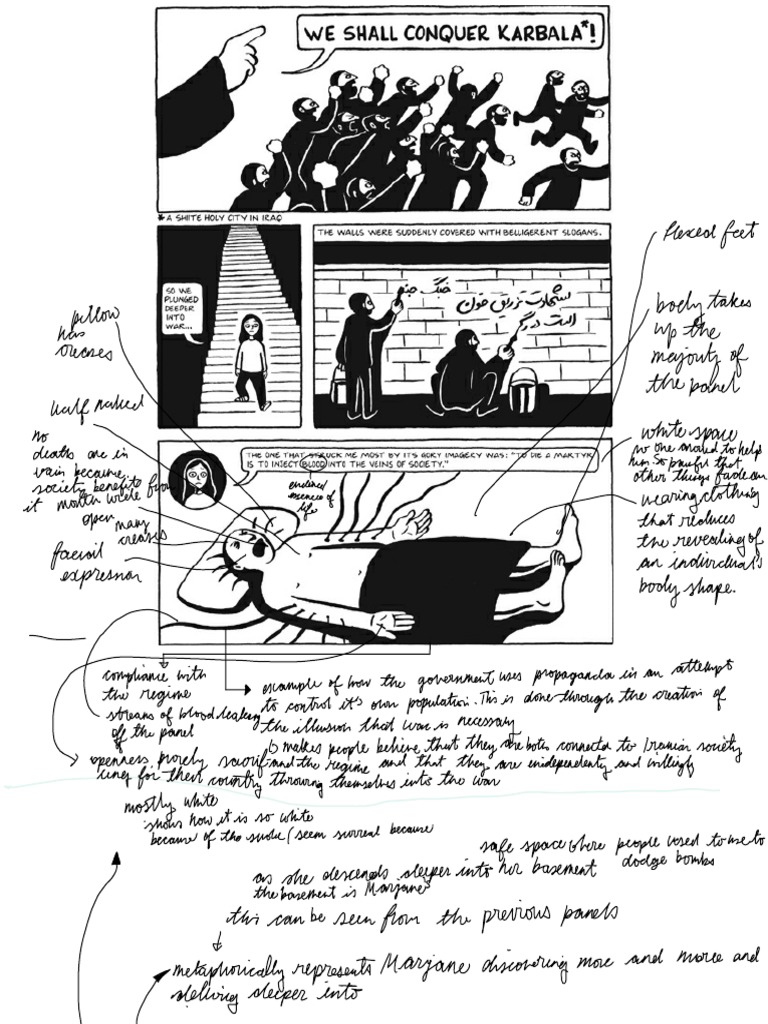 WE SHALL CONQUER KARBALA*!
* A SHIITE HOLY CITY IN IRAQ
SO WE
PLUNGED
DEEPER
INTO
WAR...
THE WALLS WERE SUDDENLY COVERED WITH BELLIGERENT SLOGANS.
جنگ جنگ
شهادت تزریق خون
است در رگ
THE ONE THAT STRUCK ME MOST BY ITS GORY IMAGERY WAS: "TO DIE A MARTYR
IS TO INJECT BLOOD INTO THE VEINS OF SOCIETY."
essences of
life
pillow
has
creases
half naked
no
deaths are in
vain because
society benefits from
it mouth wide
open
many
creases
facial
expression
flexed feet
body takes
up the
majority of
the panel
white space
no one around to help
him so painful that
other things fade
wearing clothing
that reduces
the revealing of
an individual's
body shape.
compliance with
the regime
streams of blood leaking
off the panel
openness, purely sacrif
icing for their country
mostly white
shows how it is so white
because of the (seem surreal because
example of how the government uses propaganda in an attempt
to control it's own population. This is done through the creation of
the illusion that war is necessary
makes people believe that they are both connected to Iranian society
and the regime and that they are independently and willingly
throwing themselves into the war
safe space where people used to use to
dodge bombs
as she descends deeper into her basement
the basement is Marjane's
this can be seen from the previous panels
metaphorically represents Marjane discovering more and more and
delving deeper into